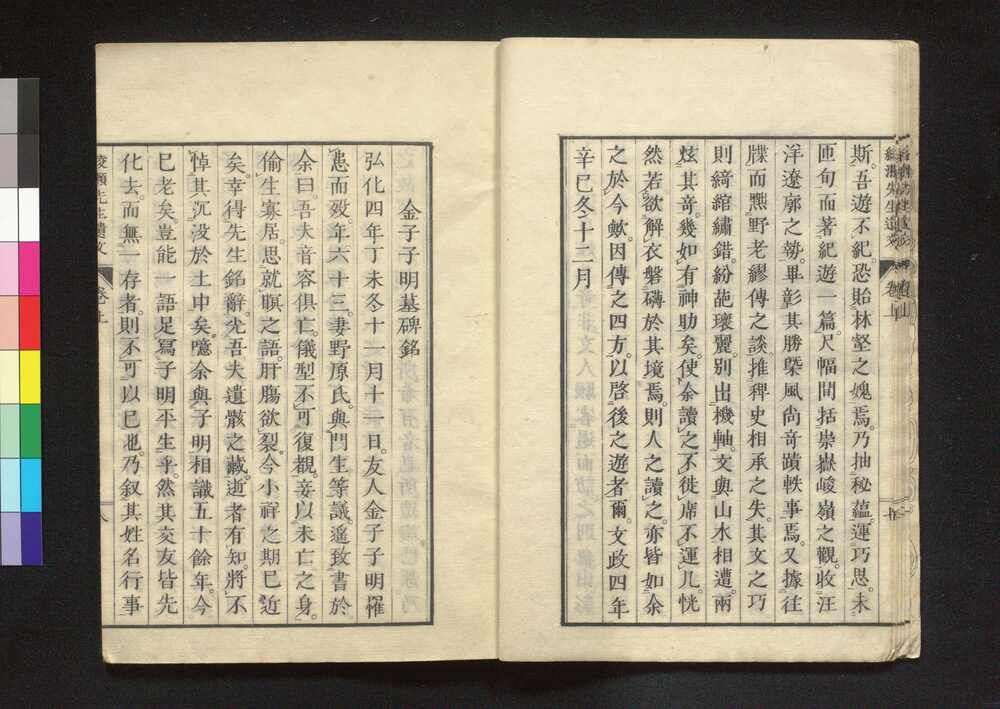 斯。吾遊不紀。恐貽林壑之媿焉。乃抽秘蘊。運巧思。未
匝旬而著紀遊一篇。尺幅間括崇嶽峻嶺之觀。收汪
洋遼廓之勢。畢彰其勝槩風尙奇蹟軼事焉。又據往
牒而黑野老繆傳之談。推稗史相承之失。其文之巧
則綺綰繡錯。紛葩瓌麗。別出機軸。文與山水相遭。兩
炫其奇。幾如有神助矣。使余讀之不徙席不運几。恍
然若欲解衣磐礴於其境焉。則人之讀之。亦皆如余
之於今歟。因傳之四方。以啓後之遊者爾。文政四年
辛巳冬十二月
金子子明墓碑銘
弘化四年丁未冬十一月十一日。友人金子子明罹
患而歿。年六十三。妻野原氏。與門生等議。遙致書於
余曰。吾夫音容俱亡。儀型不可復覩。妾以未亡之身。
偷生寡居。思就瞑之語。肝膓欲裂。今小祥之期已近
矣。幸得先生銘辭。光吾夫遺骸之藏。逝者有知。將不
悼其沉没於土中矣。噫余與子明相識五十餘年。今
已老矣。豈能一語足寫子明平生乎。然其交友皆先
化去。而無一存者。則不可以已也。乃叙其姓名行事
稜瀬先生遺文
卷上
八